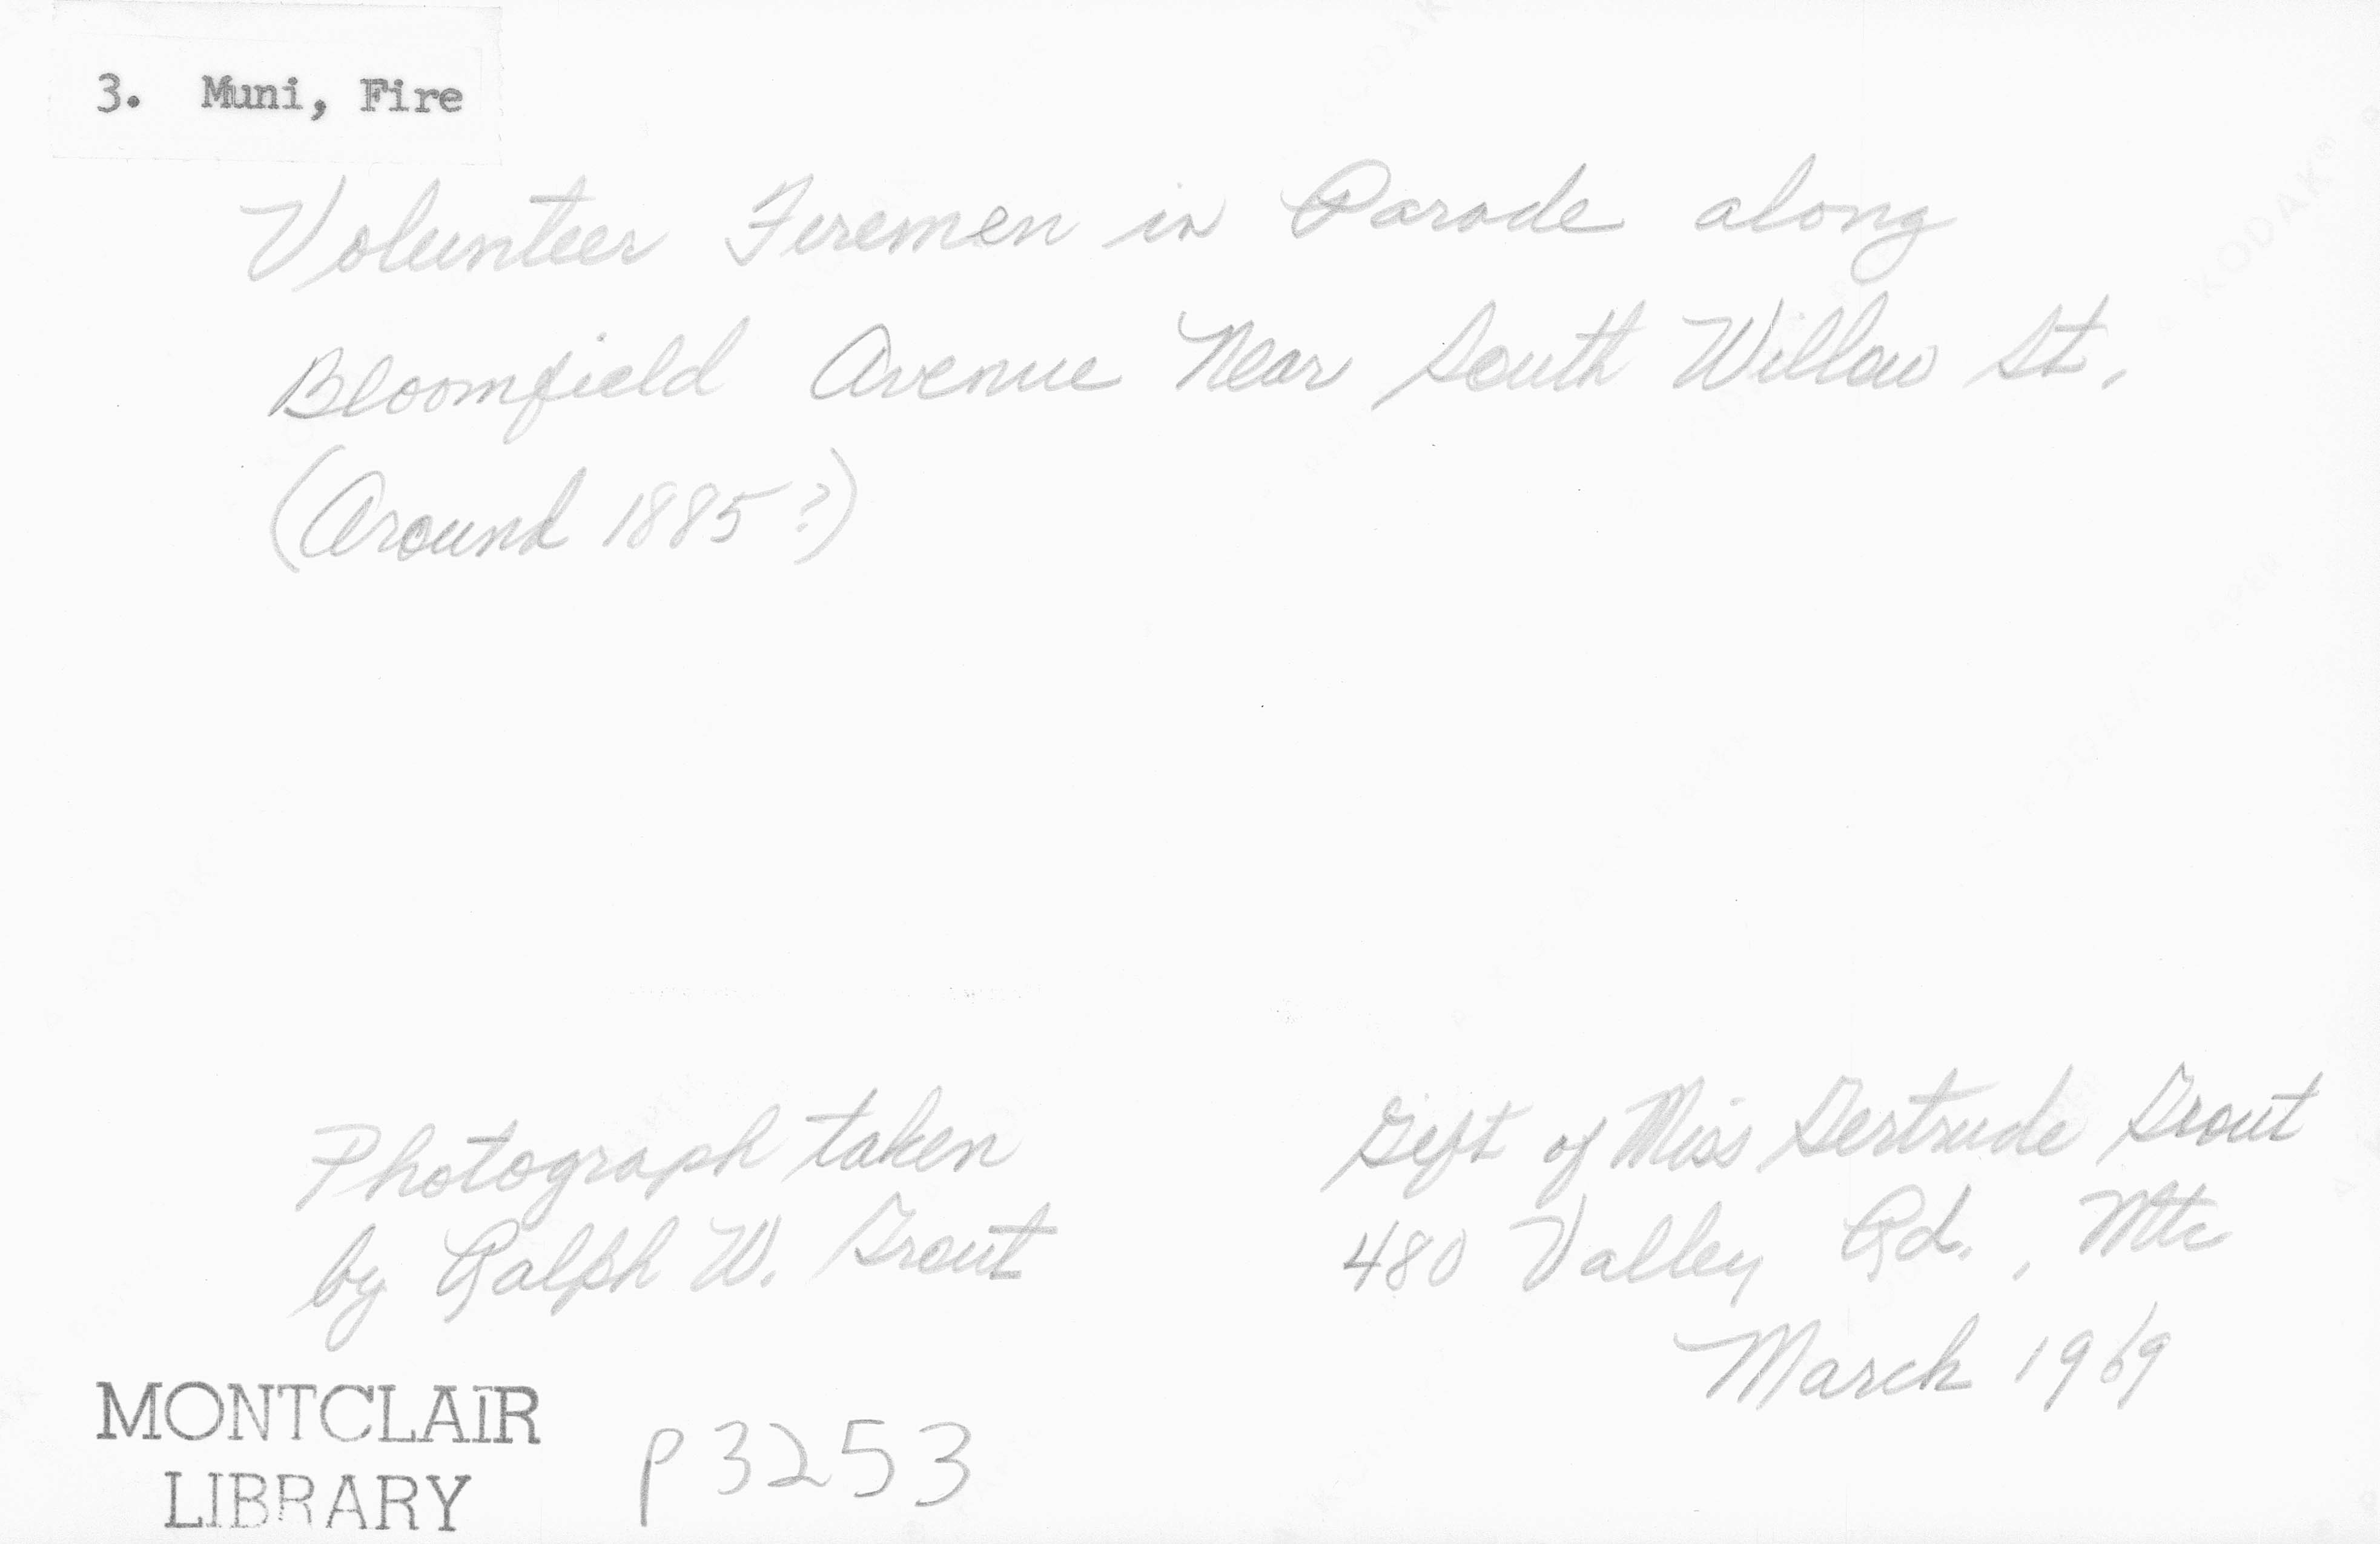 3. Muni, Fire
Volunteer Firemen in Parade along
Bloomfield Avenue Near South Willow St.
(Around 1885?)
Photograph taken
by Ralph W. Trout
Gift of Miss Gertrude Trout
480 Valley Rd., Mtc
March 1969
MONTCLAIR
LIBRARY
P3253